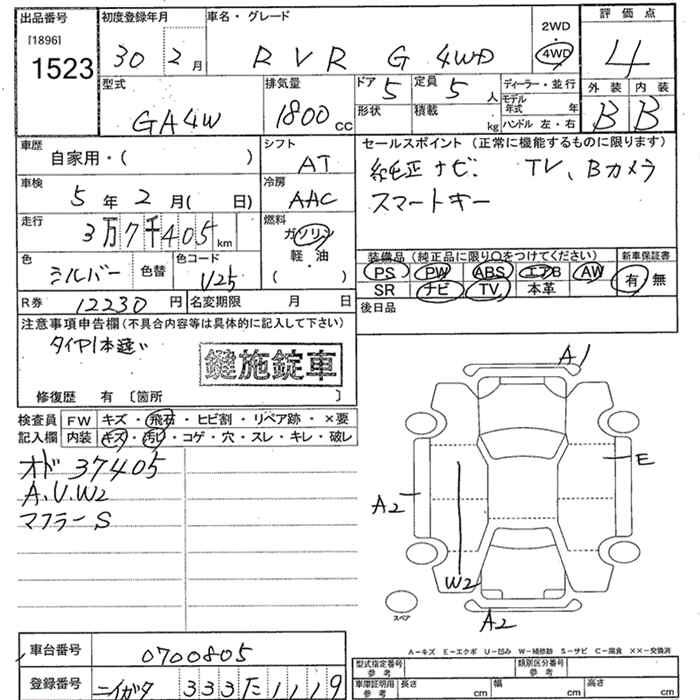 出品番号
[1896]
1523
初度登録年月
30 2月
車名・グレード
RVR G 4WD
2WD
・
4WD
評価点
4
型式
GA4W
排気量
1800cc
ドア
5
定員
5人
形状
積載
kg
ディーラー・並行
モデル年式 年
ハンドル 左・右
外装 内装
B B
車歴
自家用・( )
シフト
AT
車検
5年2月( 日)
冷房
AAC
走行
3万7千405km
燃料
ガソリン
軽・油
( )
色
シルバー
色替
色コード
U25
R券
12230円
名変期限 月 日
セールスポイント(正常に機能するものに限ります)
純正ナビ TV、Bカメラ
スマートキー
装備品(純正品に限り○をつけてください)
新車保証書
PS PW ABS エアB AW
SR ナビ TV 本革
有 無
後日品
注意事項申告欄(不具合内容等は具体的に記入して下さい)
タイヤ1本違い
鍵施錠車
修復歴 有 〔箇所 〕
検査員
記入欄
FW キズ・飛石・ヒビ割・リペア跡・×要
内装 キズ・汚れ・コゲ・穴・スレ・キレ・破レ
オド37405
A.U.W2
マフラーS
A1
E
A2
W2
A2
スペア
A-キズ E-エクボ U-凹み W-補修跡 S-サビ C-腐食 ××-交換済
車台番号
0700805
登録番号
ニイガタ 333 た 1119
型式指定番号
参考
類別区分番号
参考
車庫証明用
参考
長さ cm 幅 cm 高さ cm